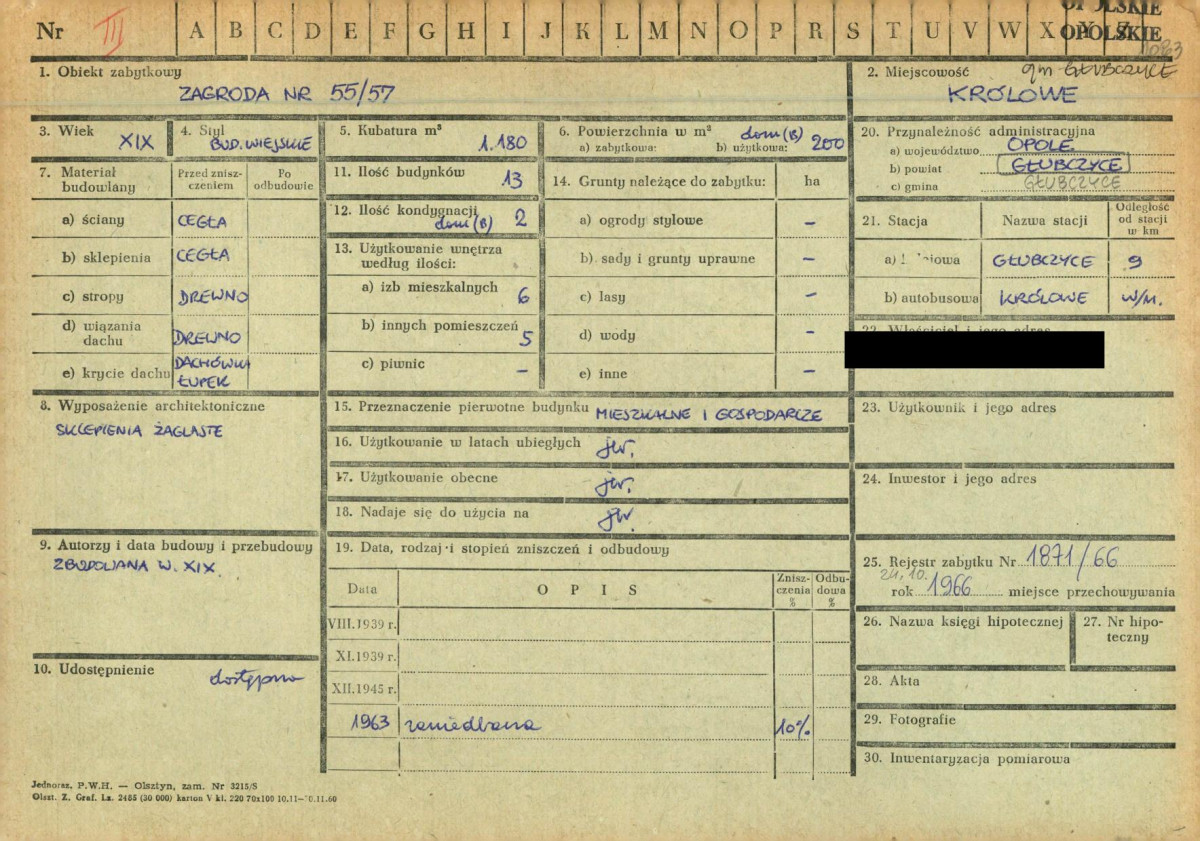 OPOLSKIE
Nr III A B C D E F G H I J K L M N O P R S T U V W X Y Z OPOLSKIE
1. Obiekt zabytkowy
ZAGRODA NR 55/57
2. Miejscowość gm GŁUBCZYCE
KRÓLOWE
3. Wiek XIX
4. Styl BUD. WIEJSKIE
5. Kubatura m³ 1.180
6. Powierzchnia w m² dom (B)
a) zabytkowa: b) użytkowa: 200
7. Materiał budowlany
Przed zniszczeniem
Po odbudowie
a) ściany CEGŁA
b) sklepienia CEGŁA
c) stropy DREWNO
d) wiązania dachu DREWNO
e) krycie dachu DACHÓWKA ŁUPEK
8. Wyposażenie architektoniczne
SKLEPIENIA ŻAGLASTE
9. Autorzy i data budowy i przebudowy
ZBUDOWANA W. XIX.
10. Udostępnienie dostępna
11. Ilość budynków 13
12. Ilość kondygnacji dom (B) 2
13. Użytkowanie wnętrza
według ilości:
a) izb mieszkalnych 6
b) innych pomieszczeń 5
c) piwnic –
14. Grunty należące do zabytku: ha
a) ogrody stylowe –
b) sady i grunty uprawne –
c) lasy –
d) wody –
e) inne –
15. Przeznaczenie pierwotne budynku MIESZKALNE I GOSPODARCZE
16. Użytkowanie w latach ubiegłych jw.
17. Użytkowanie obecne jw.
18. Nadaje się do użycia na jw.
19. Data, rodzaj i stopień zniszczeń i odbudowy
Data OPIS Zniszczenia % Odbudowa %
VIII.1939 r.
XI.1939 r.
XII.1945 r.
1963 zaniedbana 10%
20. Przynależność administracyjna
a) województwo OPOLE
b) powiat GŁUBCZYCE
c) gmina GŁUBCZYCE
21. Stacja Nazwa stacji Odległość od stacji w km
a) GŁUBCZYCE 9
b) autobusowa KRÓLOWE W/M.
22. Właściciel i jego adres
23. Użytkownik i jego adres
24. Inwestor i jego adres
25. Rejestr zabytku Nr 1871/66
24.10.
rok 1966 miejsce przechowywania
26. Nazwa księgi hipotecznej
27. Nr hipoteczny
28. Akta
29. Fotografie
30. Inwentaryzacja pomiarowa
Jednoraz. P.W.H. — Olsztyn, zam. Nr 3215/S
Olszt. Z. Graf. Lz. 2455 (30 000) karton V kl. 220 70x100